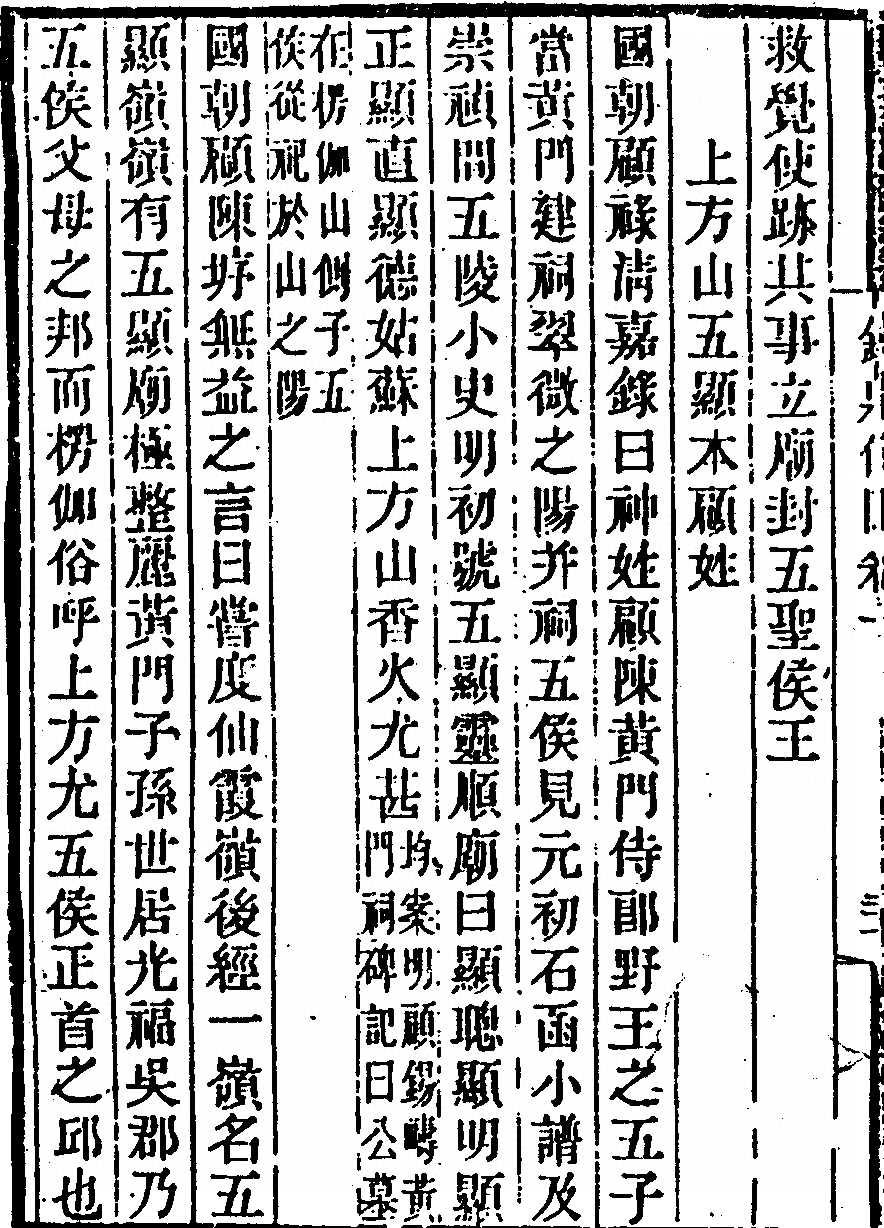 救覺使跡共事立廟封五聖侯王
上方山五顯本顧姓
國朝顧祿清嘉錄曰神姓顧陳黃門侍郎野王之五子
當黃門建祠翠微之陽并祠五侯見元初石函小譜及
崇禎間五陵小史明初號五顯靈順廟曰顯聰顯明顯
正顯直顯德姑蘇上方山香火尤甚均案明顧錫疇黃
門祠碑記曰公墓
在楞伽山側子五
侯從祀於山之陽
國朝顧陳垿無益之言曰嘗度仙霞嶺後經一嶺名五
顯嶺嶺有五顯廟極整麗黃門子孫世居光福吳郡乃
五侯父母之邦而楞伽俗呼上方尤五侯正首之邱也
三